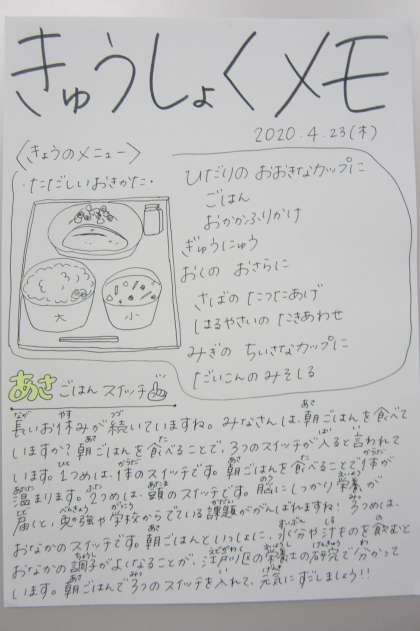 きゅうしょくメモ
2020.4.23(木)
〈きょうのメニュー〉
・ただしいおきかた・
ひだりの おおきなカップに
ごはん
おかかふりかけ
ぎゅうにゅう
おくの おさらに
さばの たつたあげ
はるやさいの たきあわせ
みぎの ちいさなカップに
だいこんの みそしる
大
小
あさごはん スイッチ
長いお休みが続いていますね。みなさんは、朝ごはんを食べて
いますか?朝ごはんを食べることで、3つのスイッチが入ると言われて
います。1つめは、体のスイッチです。朝ごはんを食べることで体が
温まります。2つめは、頭のスイッチです。脳にしっかり栄養が
届くと、勉強や学校からでている課題ががんばれますね!3つめは、
おなかのスイッチです。朝ごはんといっしょに、水分や汁ものを飲むと
おなかの調子がよくなることが、江戸川区の栄養士の研究で分かって
います。朝ごはんで3つのスイッチを入れて、元気にすごしましょう!!